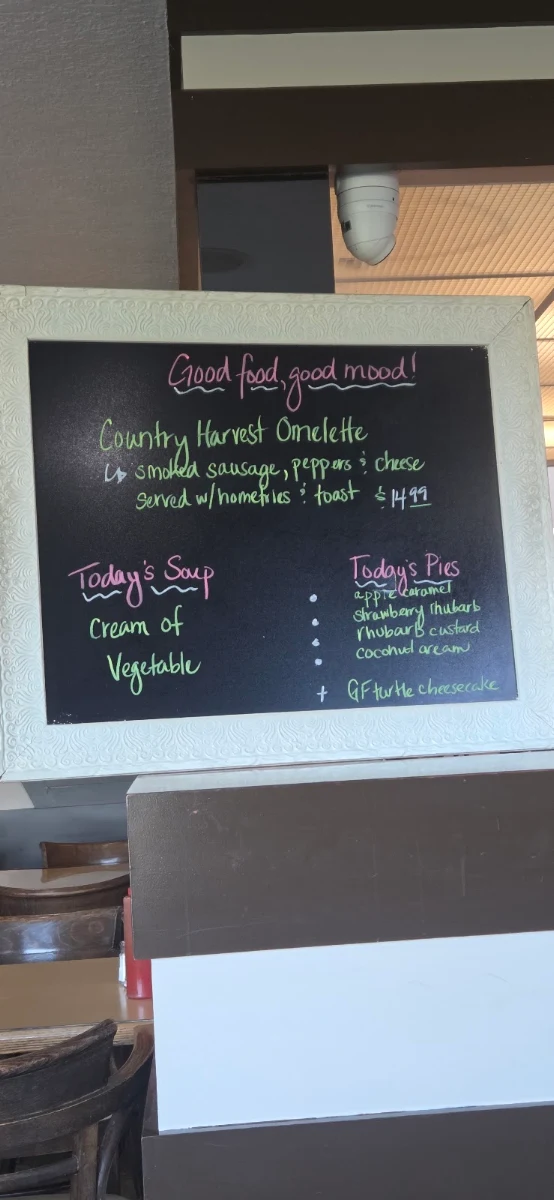 Good food, good mood!
Country Harvest Omelette
↳ smoked sausage, peppers & cheese
served w/homefries & toast $14.99
Today's Soup
Cream of
Vegetable
Today's Pies
• apple caramel
• strawberry rhubarb
• rhubarb custard
• coconut cream
+ GF turtle cheesecake